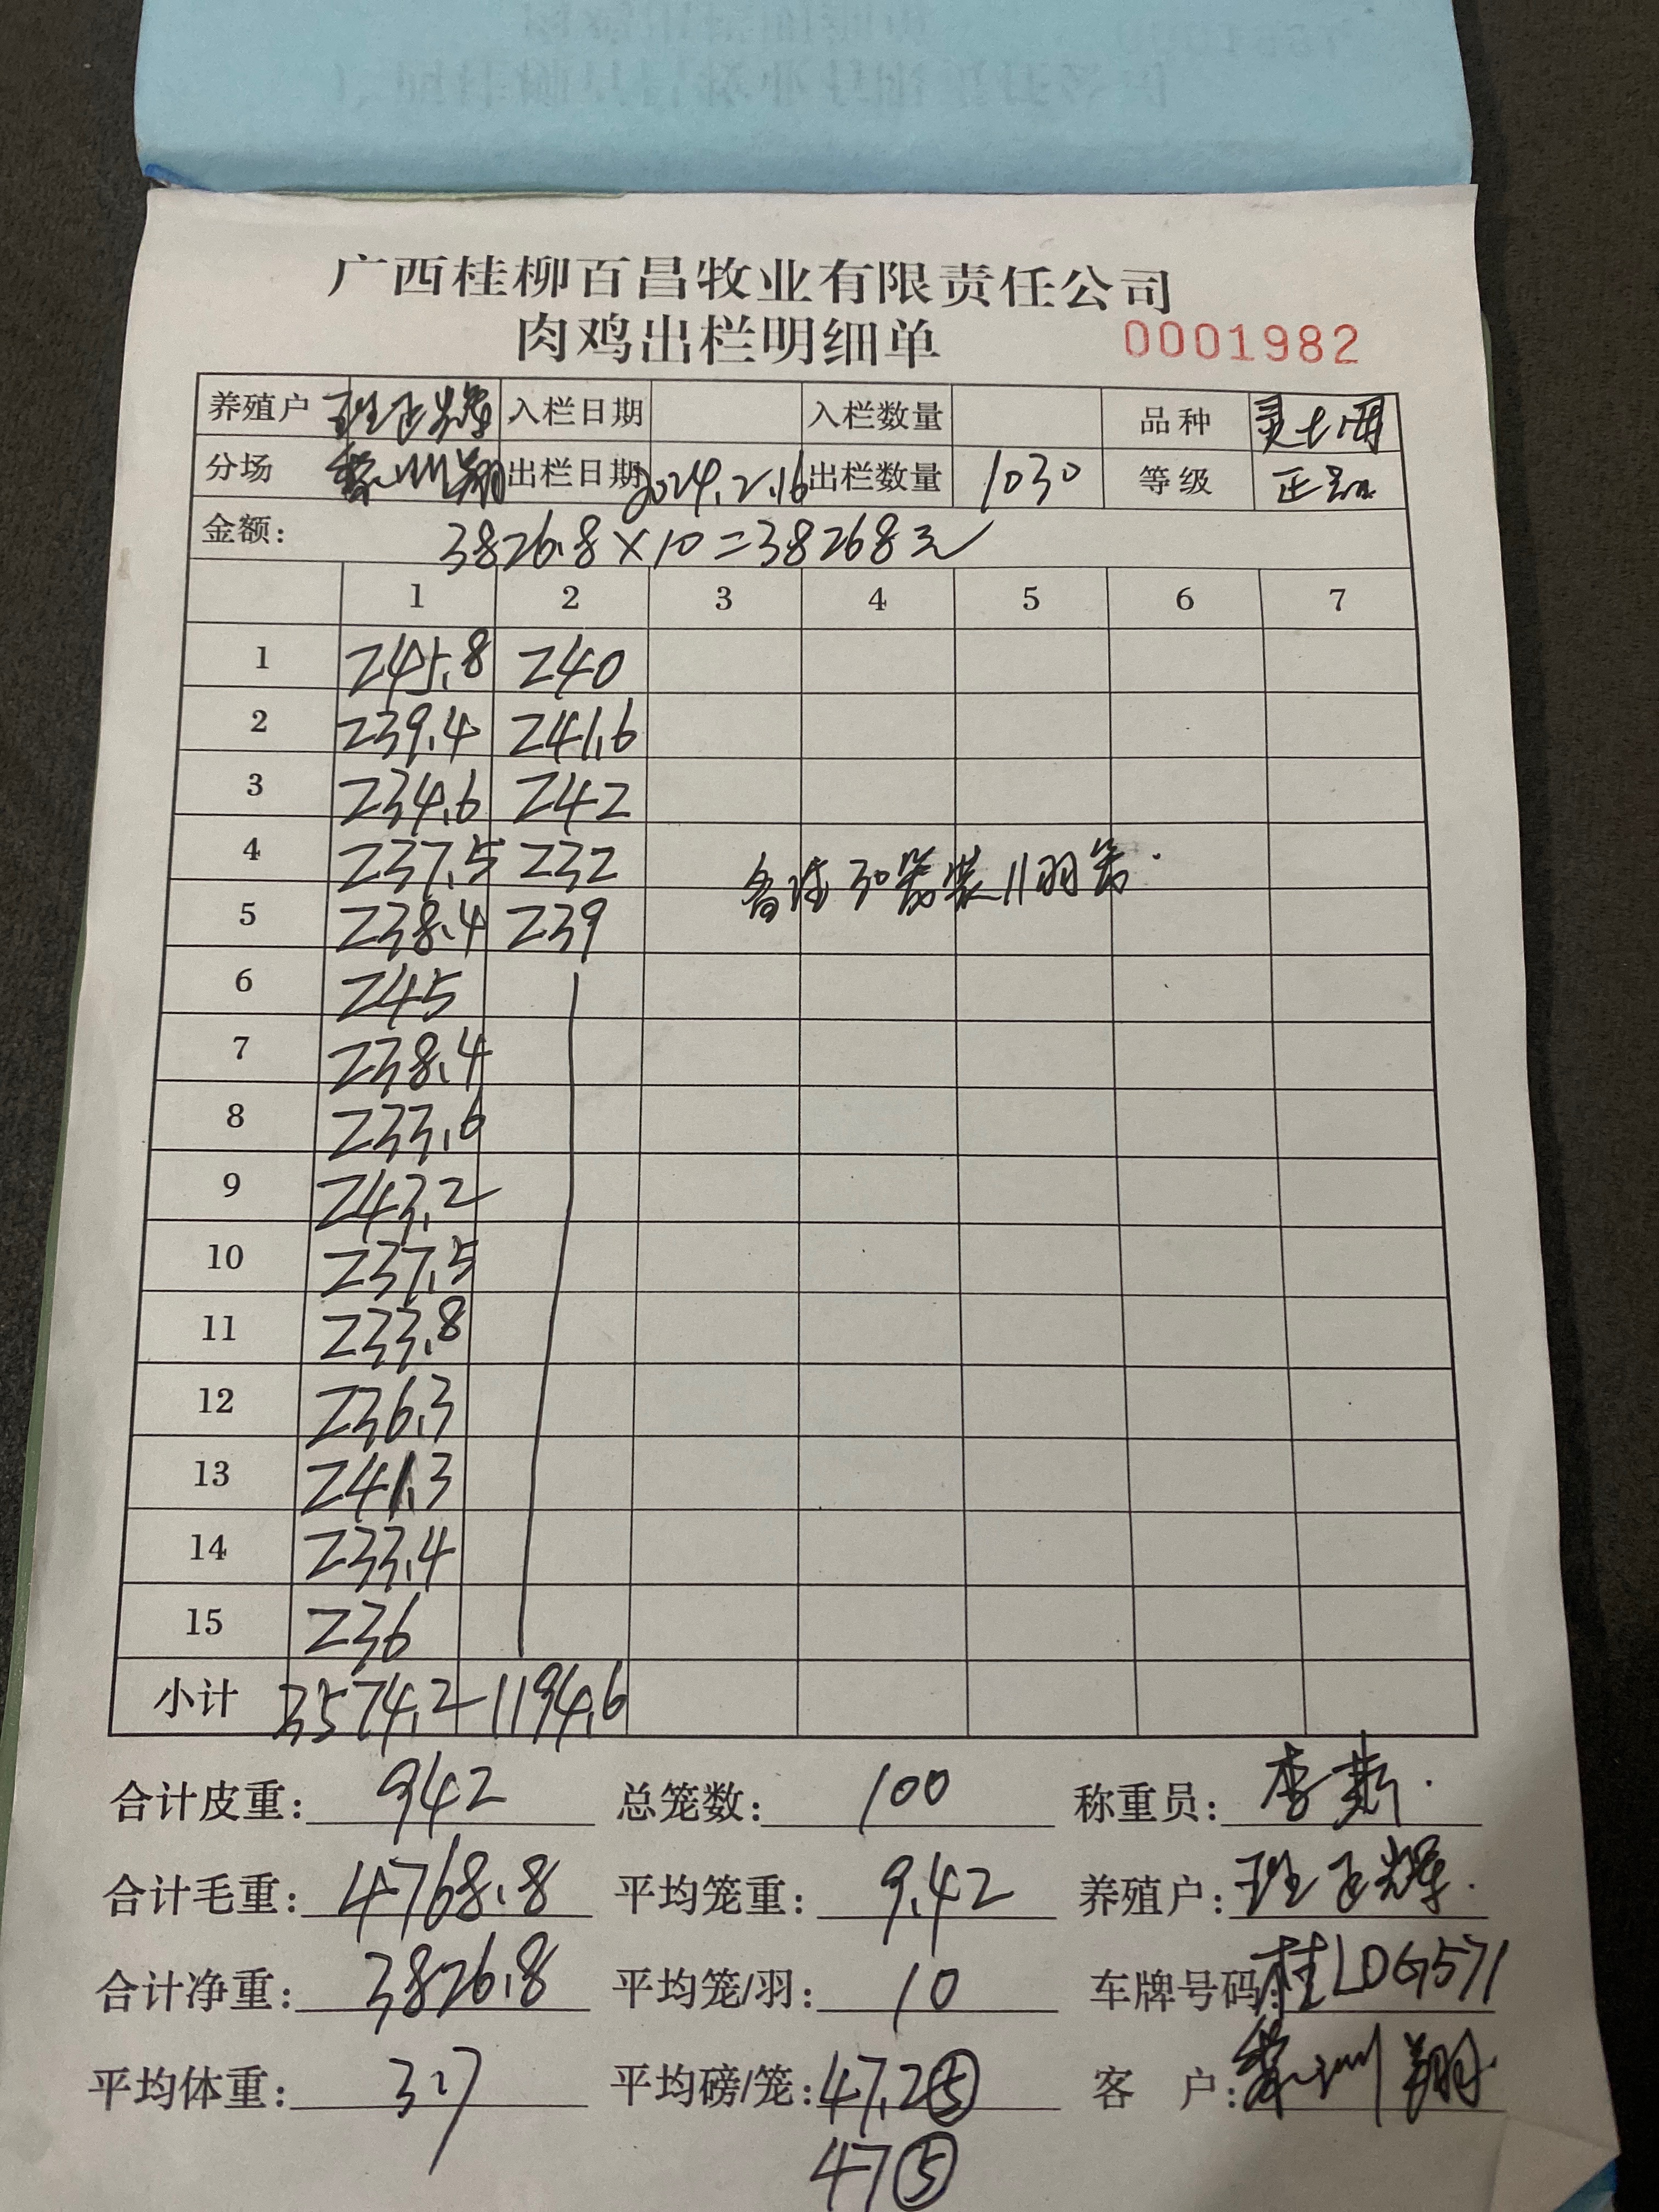 广西桂柳百昌牧业有限责任公司
肉鸡出栏明细单 0001982
养殖户 班正辉 入栏日期 入栏数量 品种 灵七两
分场 出栏日期 2024.2.16 出栏数量 1030 等级 正品
金额: 3826.8×10=38268元
1 2 3 4 5 6 7
1 245.8 240
2 239.4 241.6
3 234.6 242
4 237.5 232
5 238.4 239
备注30笼装11羽笼.
6 245
7 238.4
8 233.6
9 243.2
10 237.5
11 233.8
12 236.3
13 241.3
14 233.4
15 236
小计 3574.2 1194.6
合计皮重: 942 总笼数: 100 称重员: 李
合计毛重: 4768.8 平均笼重: 9.42 养殖户: 班正辉.
合计净重: 3826.8 平均笼/羽: 10 车牌号码: 桂LDG571
平均体重: 3.7 平均磅/笼: 47.2⑤ 客户:
47⑤